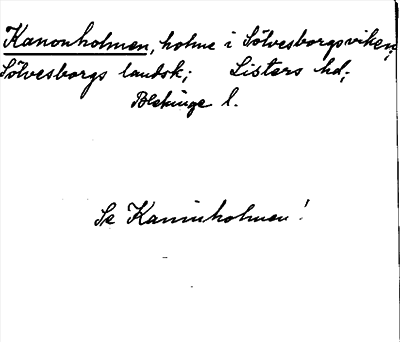 Kanonholmen, holme i Sölvesborgsviken;
Sölvesborgs landsk; Listers hd;
Blekinge l.
Se Kaninholmen!